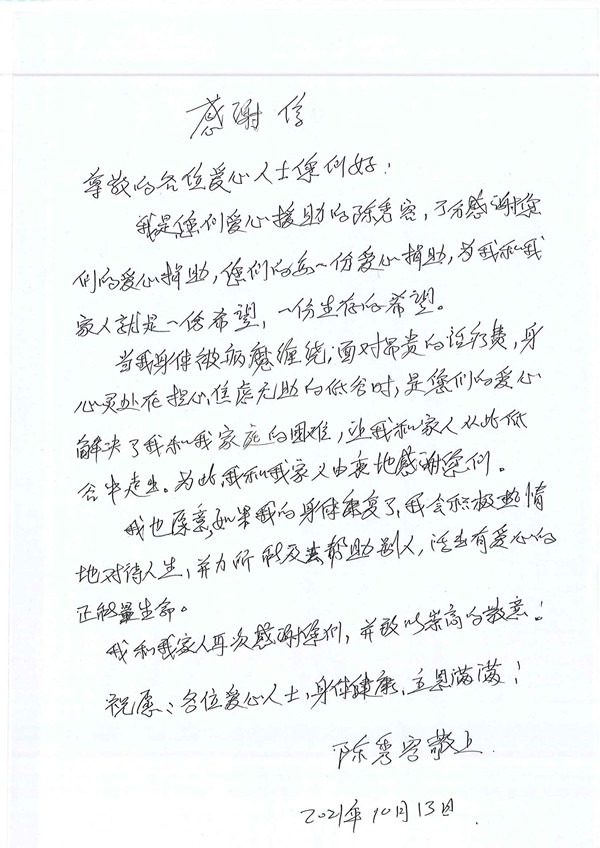 感谢信
尊敬的各位爱心人士您们好：
我是您们爱心援助的陈秀容，了分感谢您
们的爱心捐助，您们的每一份爱心捐助，为我和我
家人就是一份希望，一份生存的希望。
当我身体被病魔缠绕，面对昂贵的诊疗费，身
心灵处在担心、焦虑无助的低谷时，是您们的爱心
解决了我和我家庭的困难，让我和家人从此低
谷中走出。为此，我和我家人由衷地感谢您们。
我也愿意，如果我的身体康复了，我会积极热情
地对待人生，并力所能及去帮助别人，活出有爱心的
正能量生命。
我和我家人再次感谢您们，并致以崇高的敬意！
祝愿：各位爱心人士，身体健康，主恩满满！
陈秀容敬上
2021年10月13日.